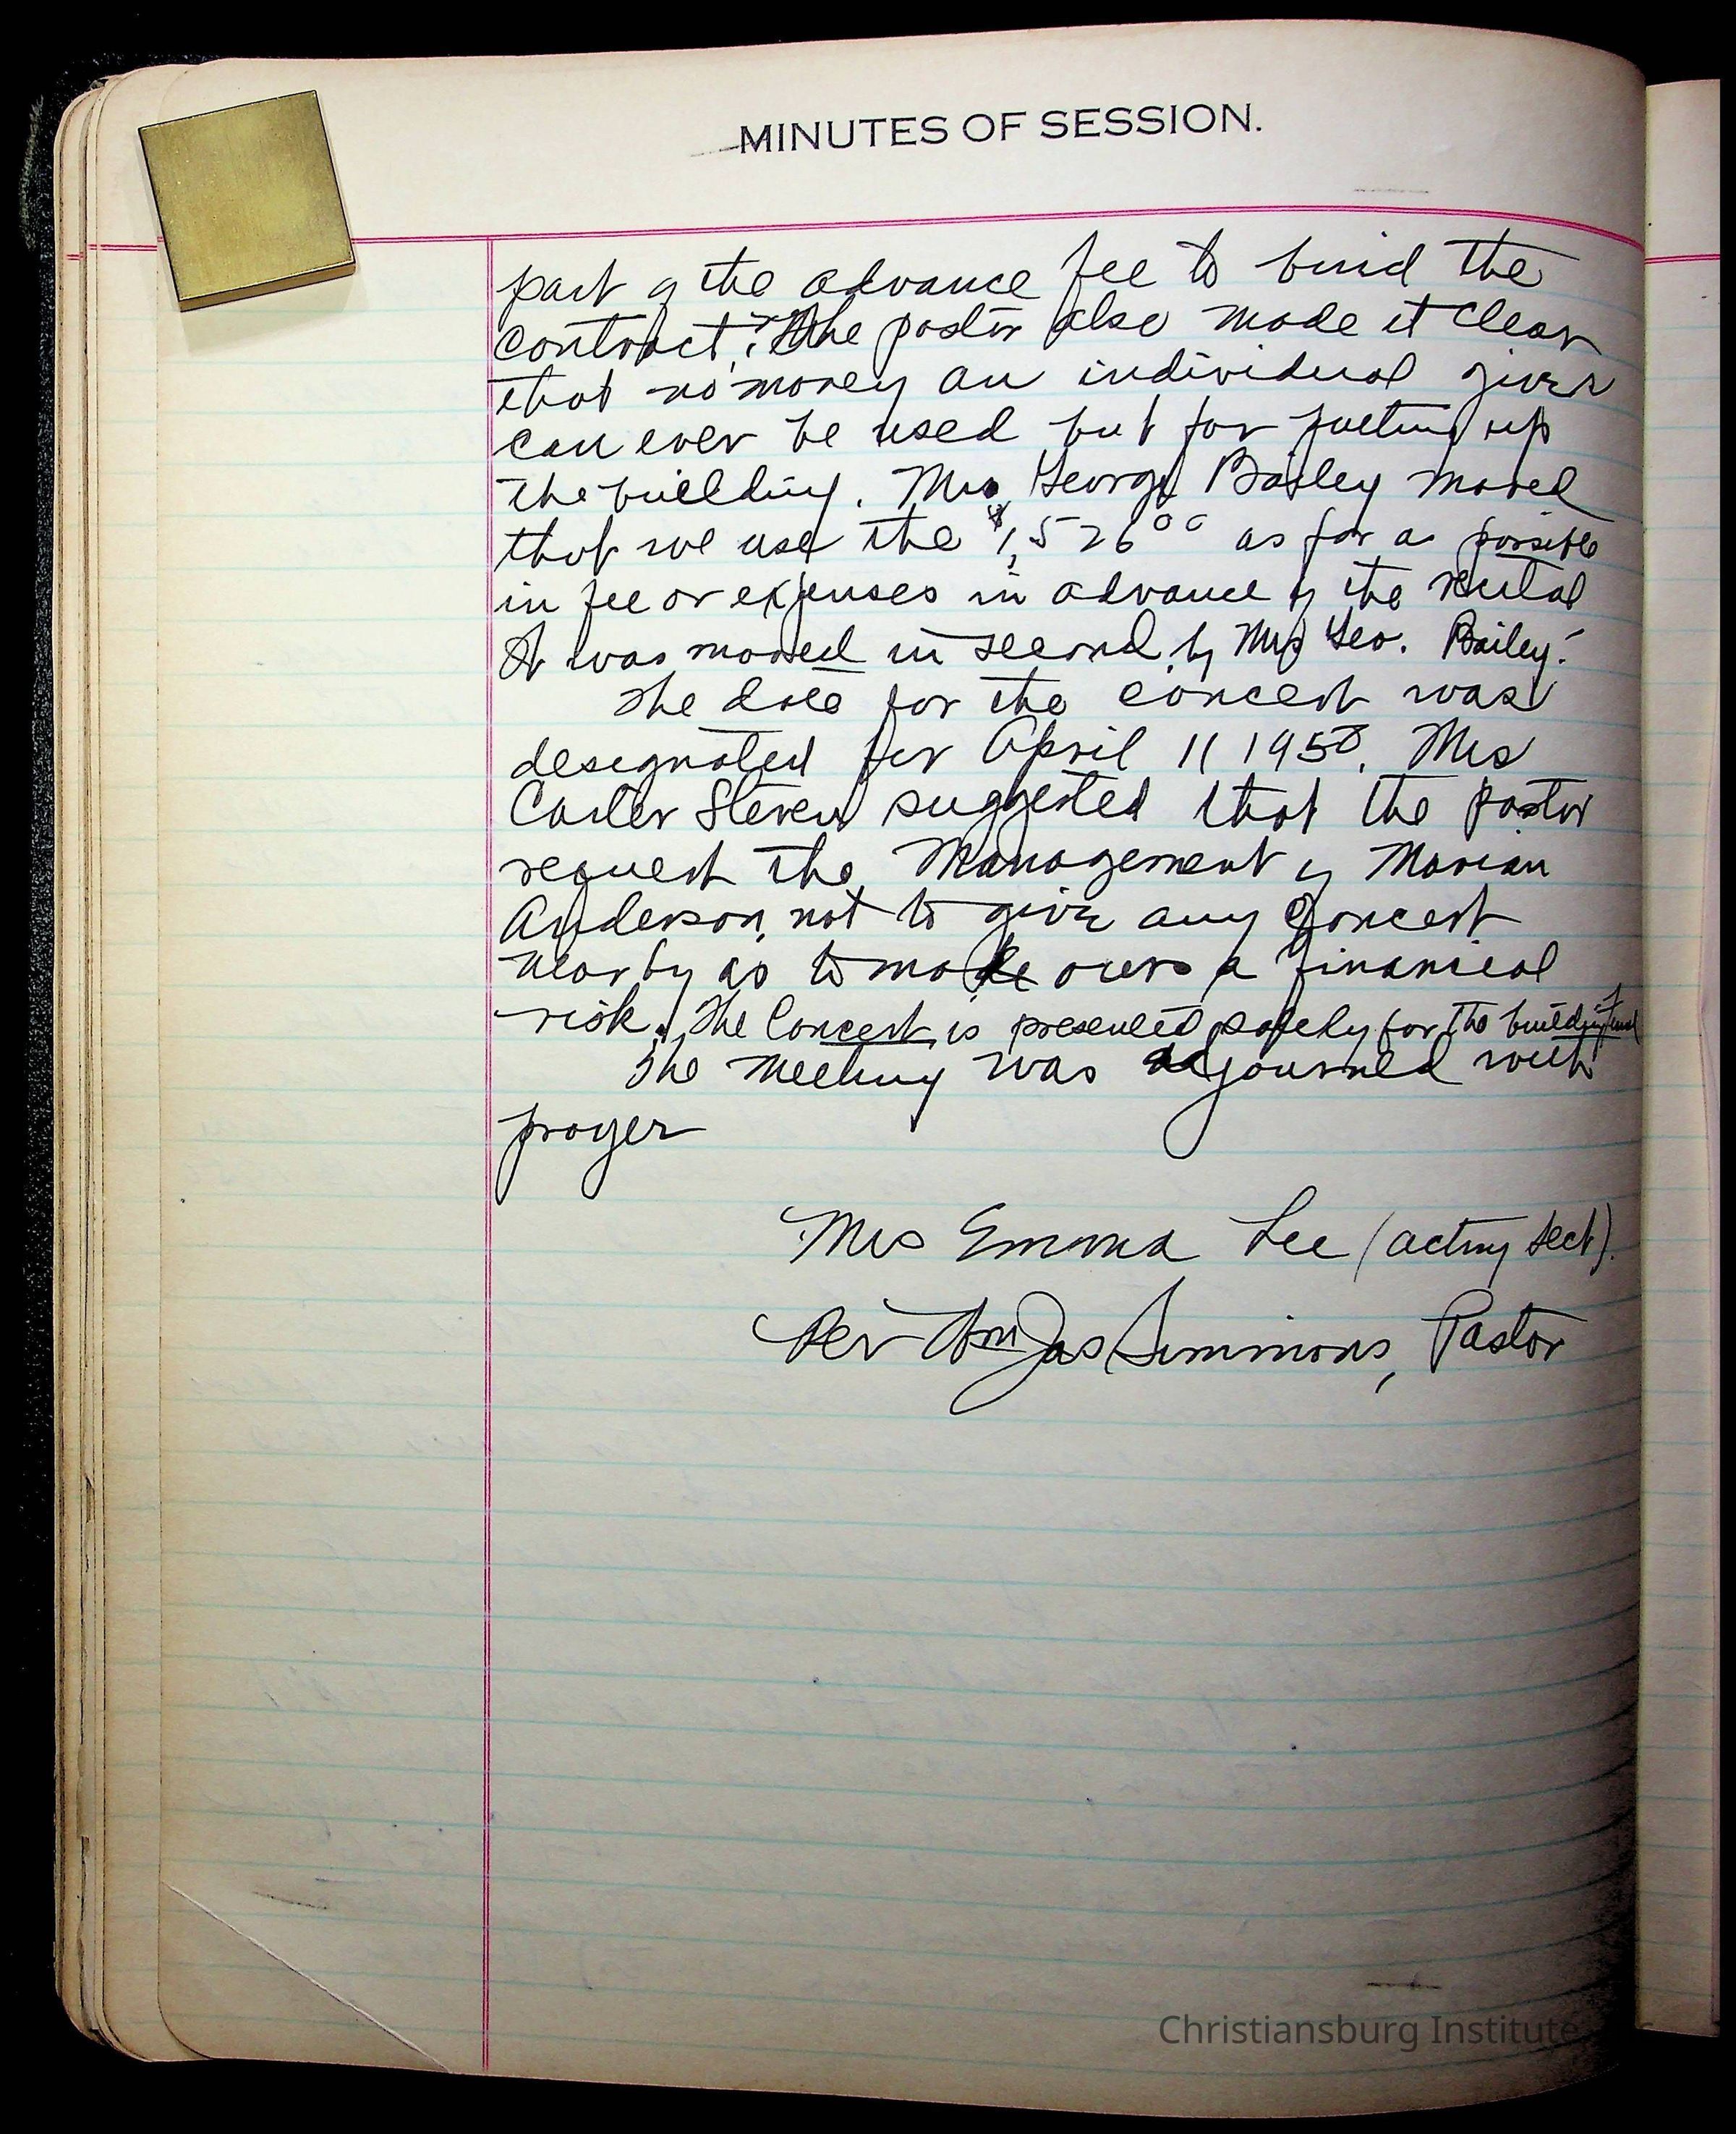 MINUTES OF SESSION.
part of the advance fee to bind the
contract. The pastor also made it clear
that no money an individual gives
can ever be used but for putting up
the building. Mrs. George Bailey moved
that we use the $1,526.00 as far as possible
in fee or expenses in advance of the recital
It was moved in second by Mrs Geo. Bailey.
The date for the concert was
designated for April 11 1950. Mrs
Carter Steven suggested that the pastor
request the Management of Marian
Anderson, not to give any concert
nearby as to made ours a financial
risk. The Concert is presented solely for the building fund
The meeting was adjourned with
prayer
Mrs Emma Lee (acting sect).
Rev Wm Jas Simmons, Pastor
Christiansburg Institute,